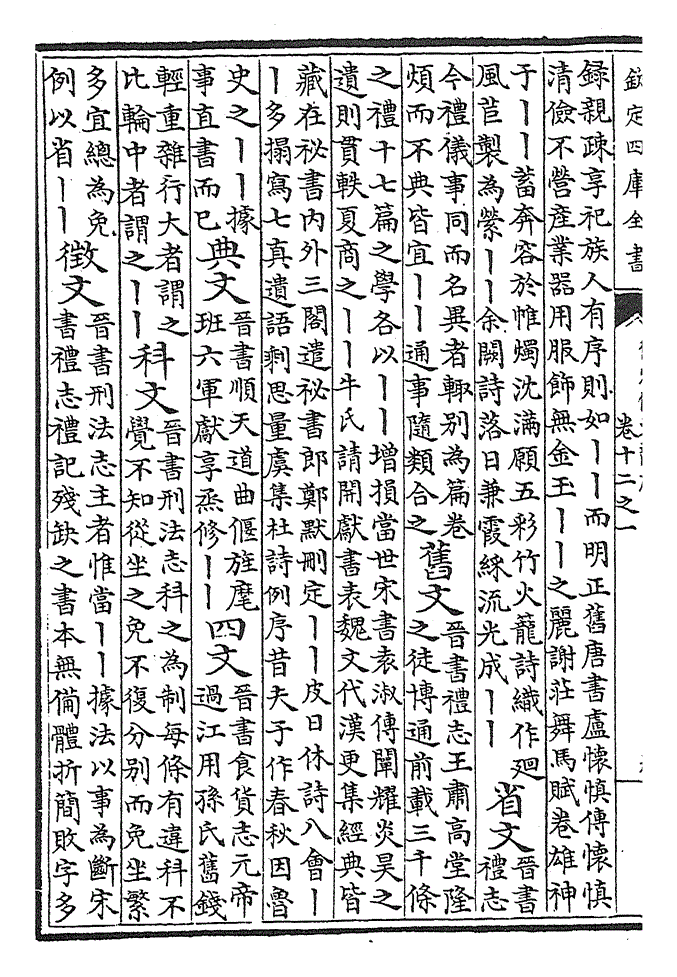 欽定四庫全書
卷十二之一
録親疎享祀族人有序則如丨丨而明正舊唐書盧懷慎傳懷慎
清儉不營産業器用服飾無金玉丨丨之麗謝莊舞馬賦卷雄神
于丨丨蓄奔容於帷燭沈滿願五彩竹火籠詩織作廻
風苣製為縈丨丨余闕詩落日兼霞綵流光成丨丨
省文
晉書
禮志
今禮儀事同而名異者輙別為篇卷
煩而不典皆宜丨丨通事隨類合之
舊文
晉書禮志王肅高堂隆
之徒博通前載三千條
之禮十七篇之學各以丨丨增損當世宋書袁淑傳闡耀炎昊之
遺則貫軼夏商之丨丨牛氏請開獻書表魏文代漢更集經典皆
藏在祕書内外三閣遣祕書郎鄭默刪定丨丨皮日休詩八會丨
丨多搨寫七真遺語剩思量虞集杜詩例序昔夫子作春秋因魯
史之丨丨據
事直書而已
典文
晉書順天道曲偃旌麾
班六軍獻享烝修丨丨
四文
晉書食貨志元帝
過江用孫氏舊錢
輕重雜行大者謂之
比輪中者謂之丨丨
科文
晉書刑法志科之為制每條有違科不
覺不知從坐之免不復分別而免坐繁
多宜總為免
例以省丨丨
徵文
晉書刑法志主者惟當丨丨據法以事為斷宋
書禮志禮記殘缺之書本無備體折簡敗字多